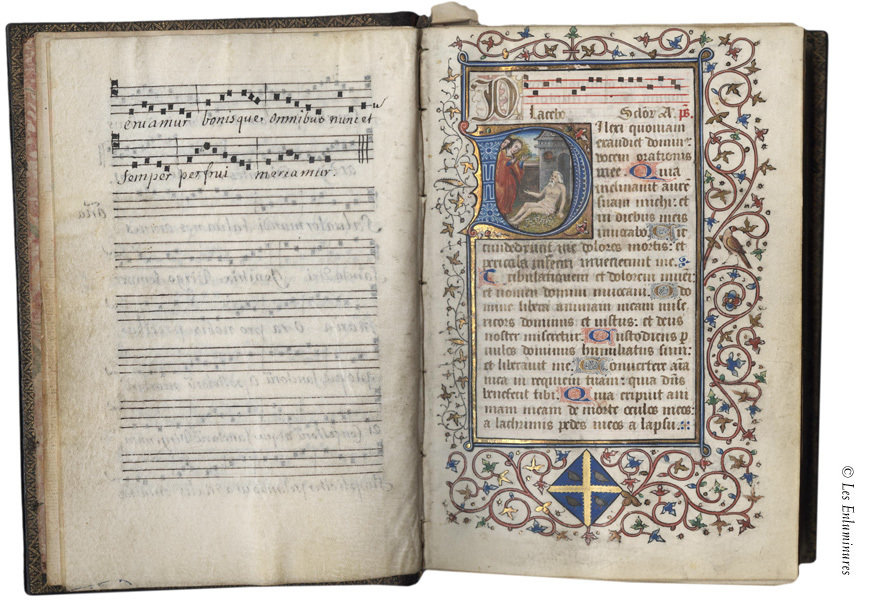 eruamur bonisque omnibus nunc et
semper perfrui meriamur.
Placebo Seclor A. ps
Dilexi quoniam
exaudiet domin᷒
vocem orationis
mee Quia
inclinavit aurē
suam michi: et
in diebus meis
invocabo Cir
cumdederunt me dolores mortis: et
pericula inferni invenerunt me.
Tribulationem et dolorem inveni:
et nomen domini invocavi. O do
mine libera animam meam mise
ricors dominus et iustus: et deus
noster miseretur. Custodiens p
vulos dominus humiliatus sum:
et liberavit me. Convertere aīa
mea in requiem tuam: quia dn̄s
benefecit tibi. Quia eripuit ani
mam meam de morte oculos meos:
a lachrimis pedes meos a lapsu.
© Les Enluminures